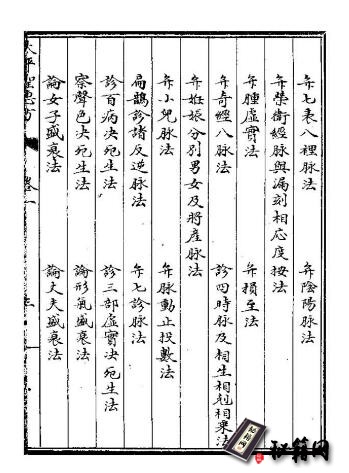 弁七表八裡脉法　弁陰陽脉法
弁榮衛經脉與漏刻相応度按法
弁腫虛實法　弁損至法
弁奇經八脉法　診四時脉及相生相剋相乘法
弁姙娠分別男女及將產脉法
弁小兒脉法　弁脉動止投數法
扁鵲診諸反逆脉法　弁七診脉法
診百病決死生法　診三部虛實決死生法
察聲色決死生法　論形氣盛衰法
論女子盛衰法　論丈夫盛衰法
太平聖惠方　卷一
秘籍网
秘籍网